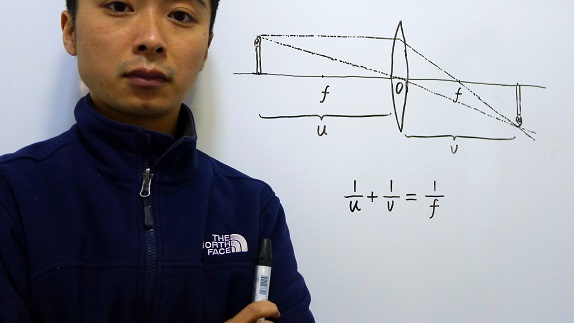 f
O
f
u
v
1/u + 1/v = 1/f
THE
NORTH
FACE